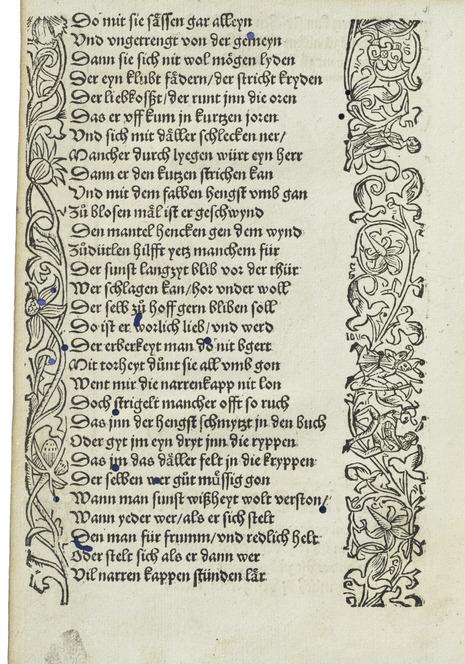 Do mit sie sässen gar alleyn
Vnd vngetrengt von der gemeyn
Dann sie sich nit wol mögen lyden
Der eyn klubt fädern/der stricht kryden
Der liebkoßt/der runt jnn die oren
Das er vff kum in kurtzen joren
Vnd sich mit däller schlecken ner/
Mancher durch lyegen würt eyn herr
Dann er den kutzen strichen kan
Vnd mit dem falben hengst vmb gan
Zů blosen mäl ist er geschwynd
Den mantel hencken gen dem wynd
Zůdütlen hilfft yetz manchem für
Der sunst langzyt blib vor der thür
Wer schlagen kan/hor vnder woll
Der selb zů hoff gern bliben soll
Do ist er worlich lieb/vnd werd
Der erberkeyt man do nit bgert
Mit torheyt dünt sie all vmb gon
Went mir die narrenkapp nit lon
Doch strigelt mancher offt so ruch
Das jnn der hengst schmytzt jn den buch
Oder gyt jm eyn dryt jnn die ryppen
Das jm das däller felt in die kryppen
Der selben wer gůt müssig gon
Wann man sunst wißheyt wolt verston/
Wann yeder wer/als er sich stelt
Den man für frumm/vnd redlich helt
Oder stelt sich als er dann wer
Vil narren kappen stünden lär